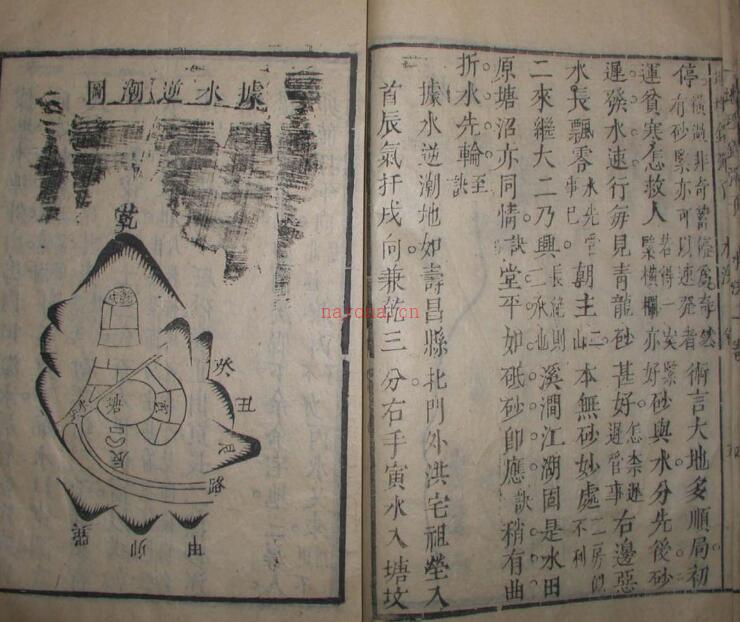 停一橫瀉非奇蓄停爲奇然有砂緊亦可以速發者術言大地多順局初
運貧寒怎救人若得一尖緊緊橫欄亦好砂與水分先後砂
遲發水速行每見青龍砂甚好怎柰遲遲管事右邊惡
水長飄零水先官事已朝主二山本無砂妙處二房似不利
二來繼大二乃興長絕則二承山溪澗江湖固是水田
原塘沼亦同情訣堂平如砥砂即應訣稍有曲
折水先輪至訣
據水逆潮地如壽昌縣北門外洪宅祖塋入
首辰氣扦戌向兼乾三分右手寅水入塘坟
據水逆潮圖
乾
癸
丑
艮
路
甲
卯
巽
塘
辰
narona.cn